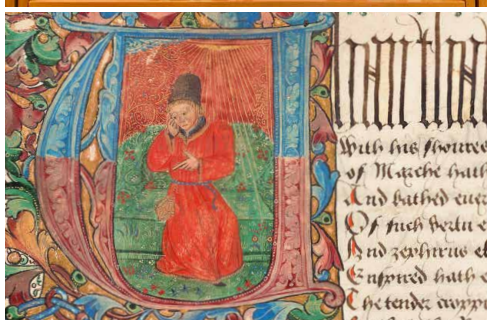 han tha
With his shoures
of Marche hath
And bathed euer
Of such vertu e
And zephirus e
Enspired hath e
The tender cropp